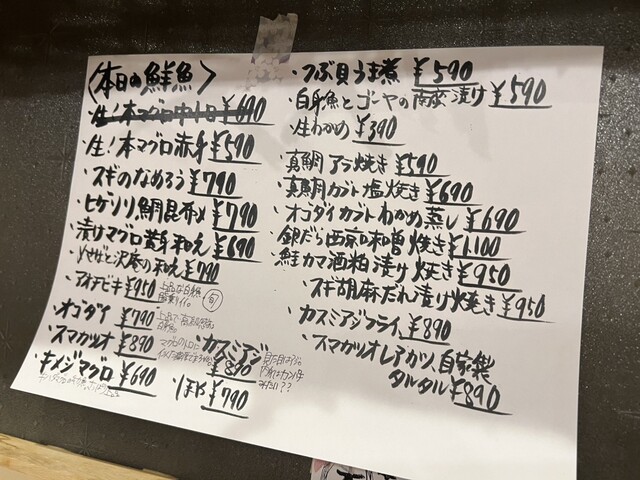 〈本日の鮮魚〉
・生!本マグロ中トロ ¥690
・生!本マグロ赤身 ¥590
・スギのなめろう ¥790
・ヒゲソリ鯛昆布〆 ¥790
・漬けマグロ黄身和え ¥690
・めざと沢庵の和え ¥790
・アオチビキ ¥950 上品な白身魚 旬
・オコダイ ¥790
・スマガツオ ¥890
・キメジマグロ ¥690
・カスミアジ ¥890
・ほや ¥790
・つぶ貝うま煮 ¥590
・白身魚とゴーヤの南蛮漬け ¥590
・生わかめ ¥390
・真鯛アラ焼き ¥590
・真鯛カブト塩焼き ¥690
・オコダイカブトわかめ蒸し ¥690
・銀だら西京味噌焼き ¥1,100
・鮭カマ酒粕漬け焼き ¥950
・スギ胡麻だれ漬け焼き ¥950
・カスミアジフライ ¥890
・スマガツオレアカツ、自家製
タルタル ¥890